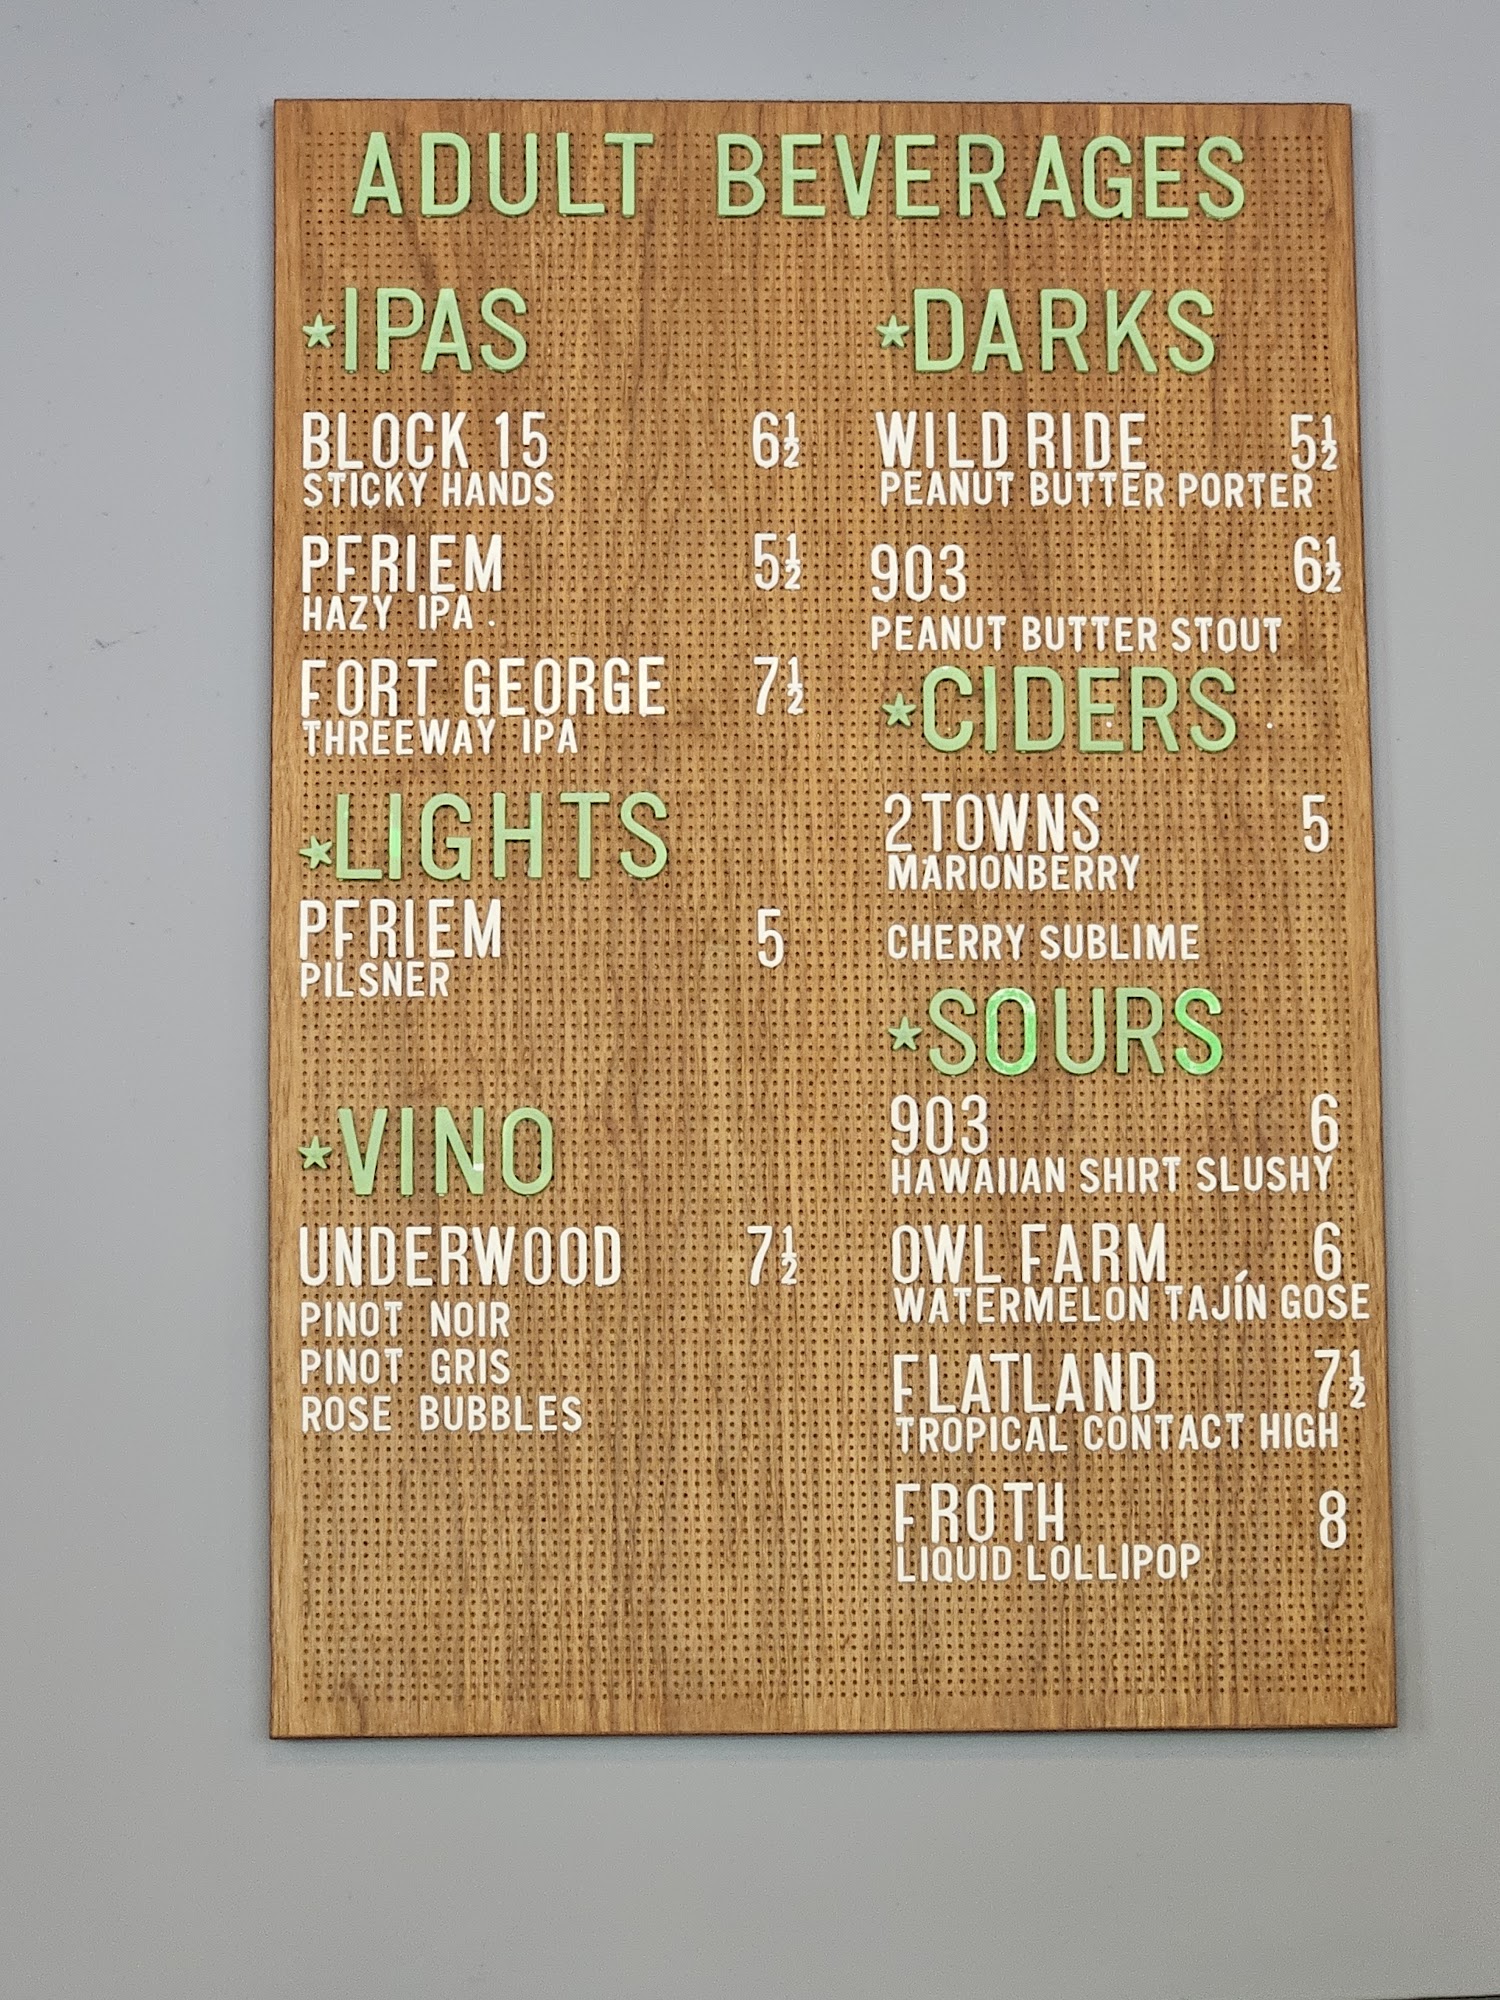 ADULT BEVERAGES
*IPAS
BLOCK 15 6½
STICKY HANDS
PFRIEM 5½
HAZY IPA .
FORT GEORGE 7½
THREEWAY IPA
*LIGHTS
PFRIEM 5
PILSNER
*VINO
UNDERWOOD 7½
PINOT NOIR
PINOT GRIS
ROSE BUBBLES
*DARKS
WILD RIDE 5½
PEANUT BUTTER PORTER
903 6½
PEANUT BUTTER STOUT
*CIDERS
2 TOWNS 5
MARIONBERRY
CHERRY SUBLIME
*SOURS
903 6
HAWAIIAN SHIRT SLUSHY
OWL FARM 6
WATERMELON TAJÍN GOSE
FLATLAND 7½
TROPICAL CONTACT HIGH
FROTH 8
LIQUID LOLLIPOP